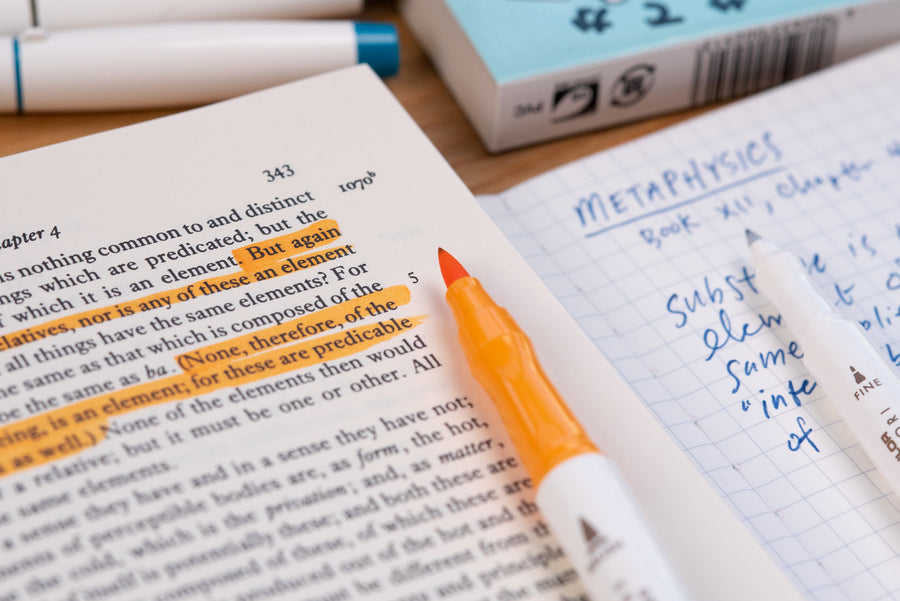 # 2 #
FINE
343
1070b
apter 4
is nothing common to and distinct
ngs which are predicated; but the
which it is an element. But again
relatives, nor is any of these an element
all things have the same elements? For
e same as that which is composed of the
be the same as ba. (None, therefore, of the
5
eing, is an element; for these are predicable
s as well.) None of the elements then would
a relative; but it must be one or other. All
same elements.
a sense they have and in a sense they have not;
of perceptible bodies are, as form, the hot,
the cold, which is the privation; and, as matter,
of itself is potentially these; and both these are
composed of these, of which these are
produced out of the hot and the
must be different from the
and principle
METAPHYSICS
Book XII, Chapter
subst e is
elem
same
"inte
of